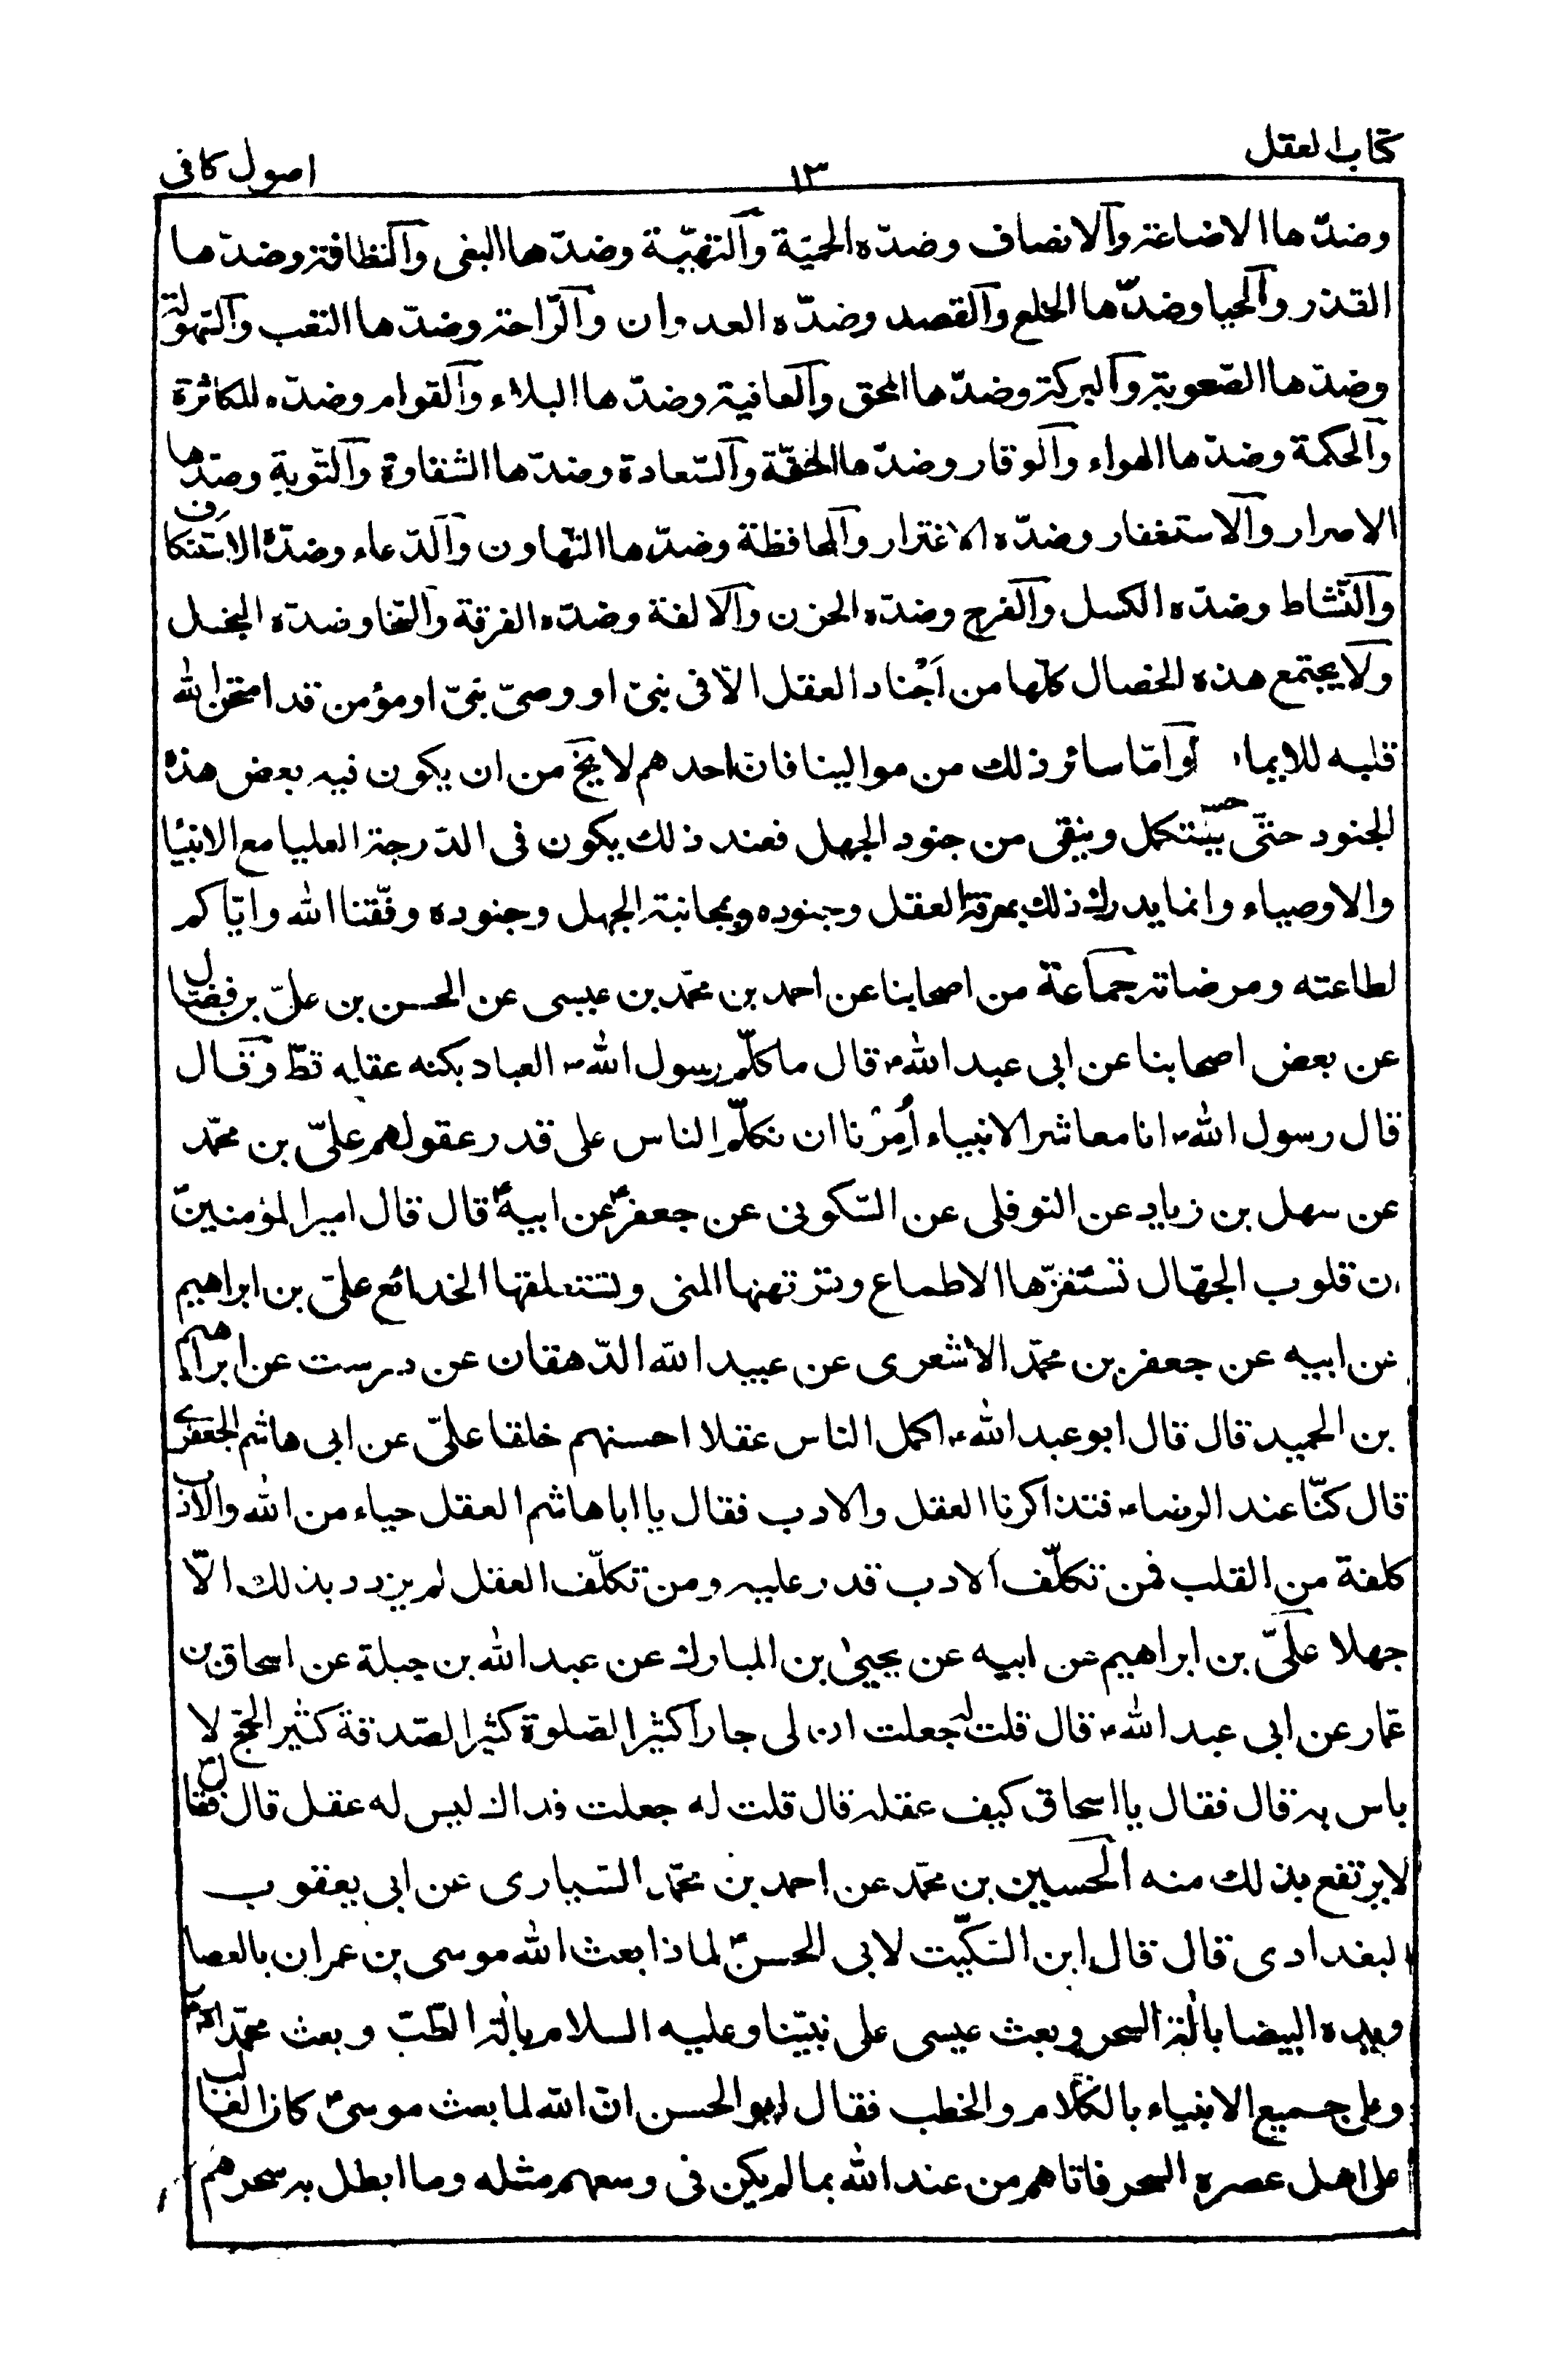 كتاب العقل
١٣
اصول كافى
وضدّها الاضاعة والانصاف وضدّه الحميّة والتهيّة وضدّها البغى والنظافة وضدّها
القذر والحيا وضدّها الخلع والقصد وضدّه العدوان والرّاحة وضدّها التعب والسّهولة
وضدّها الصّعوبة والبركة وضدّها المحق والعافية وضدّها البلاء والقوام وضدّه المكاثرة
والحكمة وضدّها الهواء والوقار وضدّها الخفّة والسّعادة وضدّها الشقاوة والتّوبة وضدّها
الاصرار والاستغفار وضدّه الاغترار والمحافظة وضدّها التّهاون والدّعاء وضدّه الاستنكاف
والنّشاط وضدّه الكسل والفرح وضدّه الحزن والالفة وضدّه الفرقة والسّخا وضدّه البخل
ولا يجتمع هذه الخصال كلّها من اَجْناد العقل الّا فى نبىّ او وصىّ نبىّ او مؤمن قد امتحن الله
قلبه للايما وامّا سائر ذلك من موالينا فانّ احدهم لا يخ من ان يكون فيه بعض هذه
الجنود حتّى يستكمل وينقى من جنود الجهل فعند ذلك يكون فى الدّرجة العليا مع الانبيا
والاوصياء وانما يدرك ذلك بمعرفة العقل وجنوده وبمجانبة الجهل وجنوده وفّقنا الله وايّاكم
لطاعته ومرضاته جماعة من اصحابنا عن احمد بن محمّد بن عيسى عن الحسن بن علىّ بن فضّال
عن بعض اصحابنا عن ابى عبد الله ع قال ما كلّم رسول الله ص العباد بكنه عقله قطّ وقال
قال رسول الله ص انا معاشر الانبياء اُمِرْنا ان نكلّم الناس على قدر عقولهم علىّ بن محمّد
عن سهل بن زياد عن النوفلى عن السّكونى عن جعفر ع عن ابيه ع قال قال امير المؤمنين ع
ان قلوب الجهّال تستفزّها الاطماع وترتهنها المنى وتستعلقها الخدائع علىّ بن ابراهيم
عن ابيه عن جعفر بن محمّد الاشعرى عن عبيد الله الدّهقان عن درست عن ابراهيم
بن الحميد قال قال ابو عبد الله ع اكمل الناس عقلا احسنهم خلقا علىّ عن ابى هاشم الجعفرى
قال كنّا عند الرضا ع فتذاكرنا العقل والادب فقال يا ابا هاشم العقل حياء من الله والادب
كلفة من القلب فمن تكلّف الادب قدر عليه ومن تكلّف العقل لم يزدد بذلك الّا
جهلا علىّ بن ابراهيم عن ابيه عن يحيىٰ بن المبارك عن عبد الله بن جبلة عن اسحاق بن
عمّار عن ابى عبد الله ع قال قلت له جعلت ان لى جارا كثير الصّلوة كثير الصّدقة كثير الحجّ لا
باس به قال فقال يا اسحاق كيف عقله قال قلت له جعلت فداك ليس له عقل قال فقال
لا يرتفع بذلك منه الحسين بن محمّد عن احمد بن محمّد السّيارى عن ابى يعقوب
البغدادى قال قال ابن السّكّيت لابى الحسن ع لماذا بعث الله موسى بن عمران بالعصا
ويده البيضا بالة السحر وبعث عيسى على نبيّنا وعليه السلام بالة الطّبّ وبعث محمّد
وعلى جميع الانبياء بالكلام والخطب فقال ابو الحسن انّ الله لما بعث موسى ع كان الغالب
على اهل عصره السحر فاتاهم من عند الله بما لم يكن فى وسعهم مثله وما ابطل به سحرهم